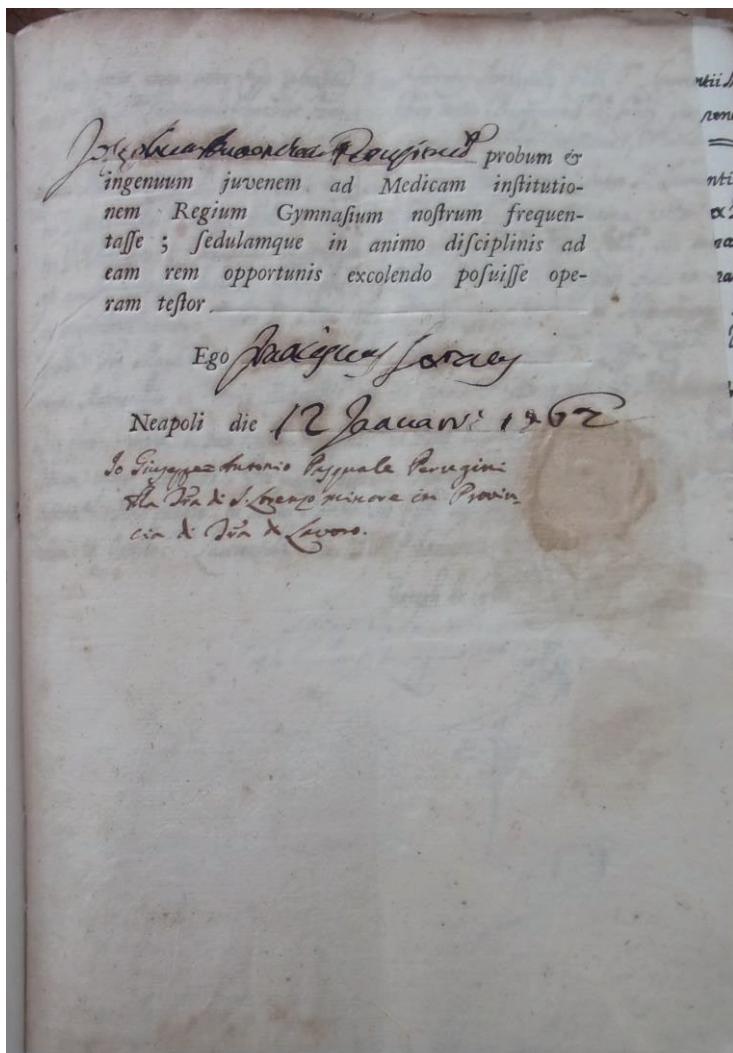 probum &
ingenuum juvenem ad Medicam inſtitutio-
nem Regium Gymnaſium noſtrum frequen-
taſſe ; ſedulamque in animo diſciplinis ad
eam rem opportunis excolendo poſuiſſe ope-
ram teſtor
Ego
Neapoli die 12 Januarii 1762
Io Giuseppe Antonio Pasquale Perugini
della Trã di S. Lorenzo minore in Provin-
cia di Trã di Lavoro.